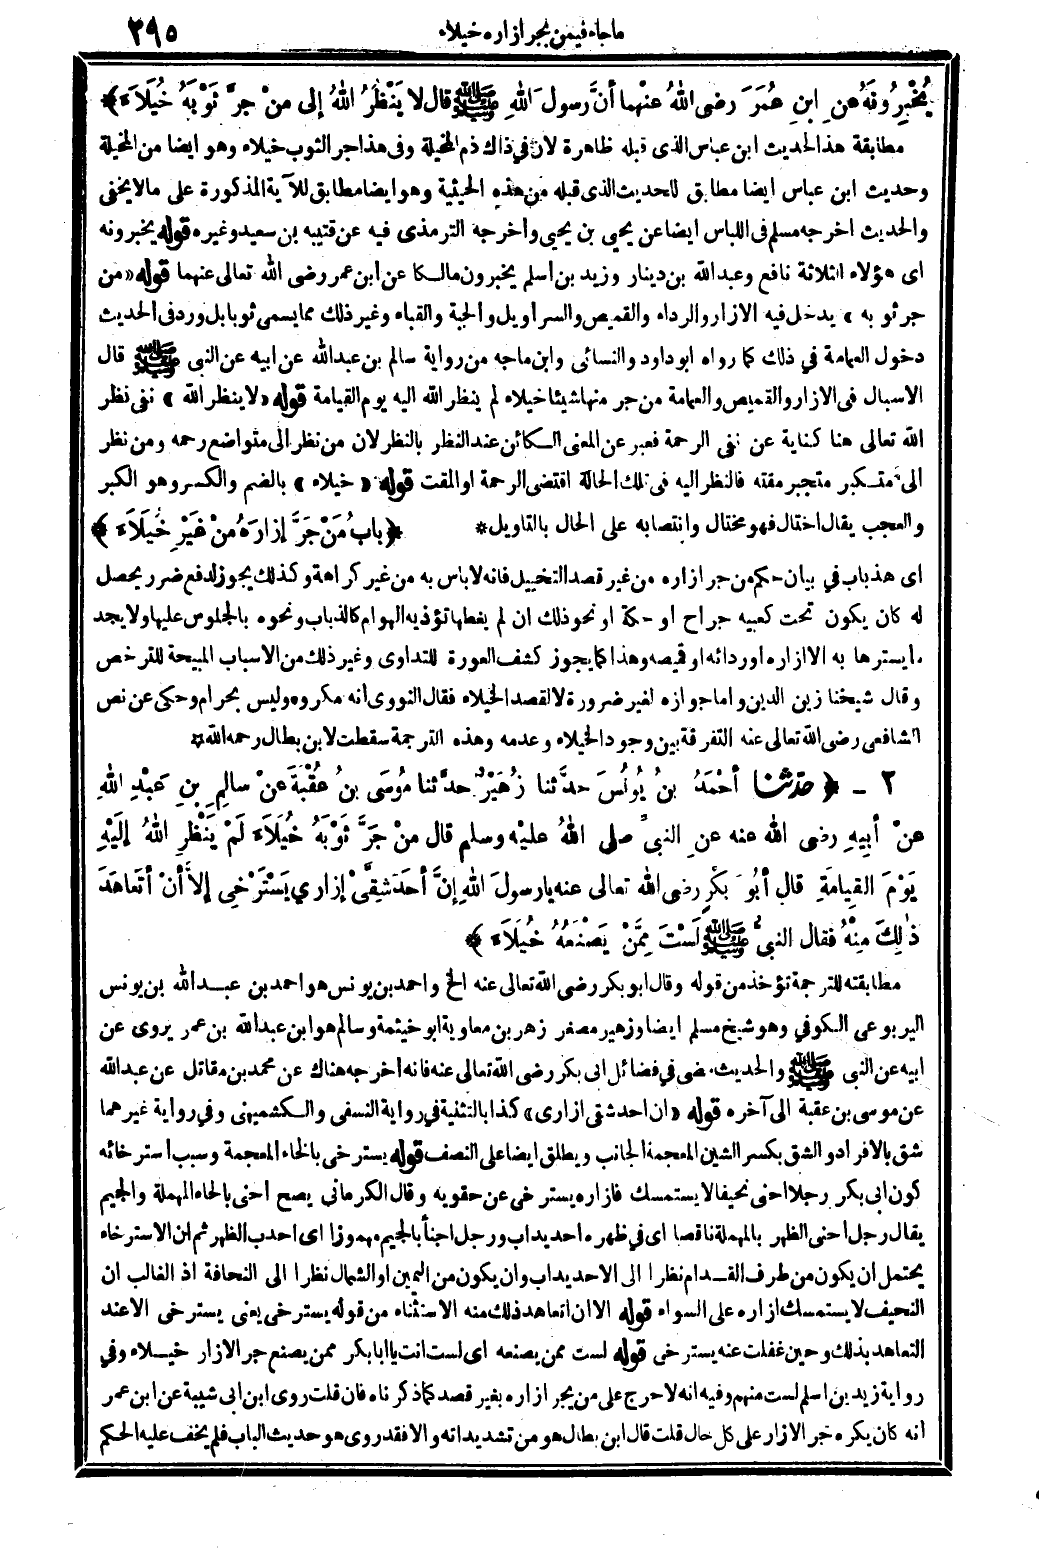 ماجاء فيمن يجر ازاره خيلاء ٢٩٥
يُخْبِرُونَهُ عن ابنِ عُمَرَ رضى اللهُ عنْهما أنَّ رسولَ اللهِ ﷺ قال لا يَنْظُرُ اللهُ إلى منْ جرَّ ثَوْبَهُ خُيَلَاءَ ﴾
مطابقة هذا الحديث ابن عباس الذى قبله ظاهرة لان في ذاك ذم المخيلة وفى هذا جر الثوب خيلاء وهو ايضا من المخيلة
وحديث ابن عباس ايضا مطابق للحديث الذى قبله من هذه الحيثية وهو ايضا مطابق للآية المذكورة على مالا يخفى
والحديث اخرجه مسلم فى اللباس ايضا عن يحيى بن يحيى واخرجه الترمذى فيه عن قتيبه بن سعيد وغيره قوله يخبرونه
اى هؤلاء الثلاثة نافع وعبدالله بن دينار وزيد بن اسلم يخبرون مالكا عن ابن عمر رضى الله تعالى عنهما قوله «من
جر ثوبه» يدخل فيه الازار والرداء والقميص والسراويل والجبة والقباء وغير ذلك مما يسمى ثوبا بل ورد فى الحديث
دخول العمامة في ذلك كما رواه ابو داود والنسائى وابن ماجه من رواية سالم بن عبدالله عن ابيه عن النبى ﷺ قال
الاسبال فى الازار والقميص والعمامة من جر منها شيئا خيلاء لم ينظر الله اليه يوم القيامة قوله «لا ينظر الله» نفى نظر
الله تعالى هنا كناية عن نفى الرحمة فعبر عن المعنى الكائن عند النظر بالنظر لان من نظر الى متواضع رحمه ومن نظر
الى متكبر متجبر مقته فالنظر اليه فى تلك الحالة اقتضى الرحمة او المقت قوله «خيلاء» بالضم والكسر وهو الكبر
والعجب يقال اختال فهو مختال وانتصابه على الحال بالتاويل* ﴿باب مَنْ جَرَّ إزارَهُ منْ غَيْرِ خُيَلَاءَ﴾
اى هذ باب في بيان حكم من جر ازاره من غير قصد التخييل فانه لا باس به من غير كراهة وكذلك يجوز لدفع ضرر يحصل
له كان يكون تحت كعبيه جراح او حكة او نحو ذلك ان لم يغطها تؤذيه الهوام كالذباب ونحوه بالجلوس عليها ولا يجد
ما يسترها به الا ازاره او ردائه او قميصه وهذا كما يجوز كشف العورة للتداوى وغير ذلك من الاسباب المبيحة للترخص
وقال شيخنا زين الدين واما جوازه لغير ضرورة لا لقصد الخيلاء فقال النووى انه مكروه وليس بحرام وحكى عن نص
الشافعى رضى الله تعالى عنه التفرقة بين وجود الخيلاء وعدمه وهذه الترجمة سقطت لابن بطال رحمه الله*
٢ - ﴿ حدّثنا أحْمَدُ بنُ يُونُسَ حدّثنا زُهَيْرٌ حدّثنا مُوسَى بنُ عُقْبَةَ عنْ سالِمِ بنِ عَبْدِ اللهِ
عنْ أبيهِ رضى اللهُ عنه عنِ النبىِّ صلى اللهُ عليْه وسلم قال منْ جَرَّ ثَوْبَهُ خُيَلَاءَ لَمْ يَنْظُرِ اللهُ إلَيْهِ
يَوْمَ القِيامَةِ قال أبُو بَكْرٍ رضى الله تعالى عنه يارسولَ اللهِ إنَّ أحَدَ شِقَّىْ إزارِي يَسْتَرْخِى إلاَّ أنْ أتَعاهَدَ
ذٰلِكَ مِنْهُ فقال النبىُّ ﷺ لَسْتَ مِمَّنْ يَصْنَعُهُ خُيَلَاءَ ﴾
مطابقته للترجمة تؤخذ من قوله وقال ابو بكر رضى الله تعالى عنه الخ واحمد بن يونس هو احمد بن عبد الله بن يونس
اليربوعى الكوفي وهو شيخ مسلم ايضا وزهير مصغر زهر بن معاوية ابو خيثمة وسالم هو ابن عبد الله بن عمر يروى عن
ابيه عن النبى ﷺ والحديث مضى في فضائل ابى بكر رضى الله تعالى عنه فانه اخرجه هناك عن محمد بن مقاتل عن عبدالله
عن موسى بن عقبة الى آخره قوله «ان احد شقى ازارى» كذا بالتثنية في رواية النسفى والكشميهنى وفي رواية غيرهما
شق بالافراد والشق بكسر الشين المعجمة الجانب ويطلق ايضا على النصف قوله يسترخى بالخاء المعجمة وسبب استرخائه
كون ابى بكر رجلا احنى نحيفا لا يستمسك فازاره يسترخى عن حقويه وقال الكرمانى يصح احنى بالحاء المهملة والجيم
يقال رجل احنى الظهر بالمهملة ناقصا اى في ظهره احديداب ورجل اجنأ بالجيم مهموزا اى احدب الظهر ثم ان الاسترخاء
يحتمل ان يكون من طرف القدام نظرا الى الاحديداب وان يكون من اليمين او الشمال نظرا الى النحافة اذ الغالب ان
النحيف لا يستمسك ازاره على السواء قوله الا ان اتعاهد ذلك منه الاستثناء من قوله يسترخى يعنى يسترخى الا عند
التعاهد بذلك وحين غفلت عنه يسترخى قوله لست ممن يصنعه اى لست انت يا ابا بكر ممن يصنع جر الازار خيلاء وفي
رواية زيد بن اسلم لست منهم وفيه انه لا حرج على من يجر ازاره بغير قصد كما ذكرناه فان قلت روى ابن ابى شيبة عن ابن عمر
انه كان يكره جر الازار على كل حال قلت قال ابن بطال هو من تشديداته والا فقد روى هو حديث الباب فلم يخف عليه الحكم